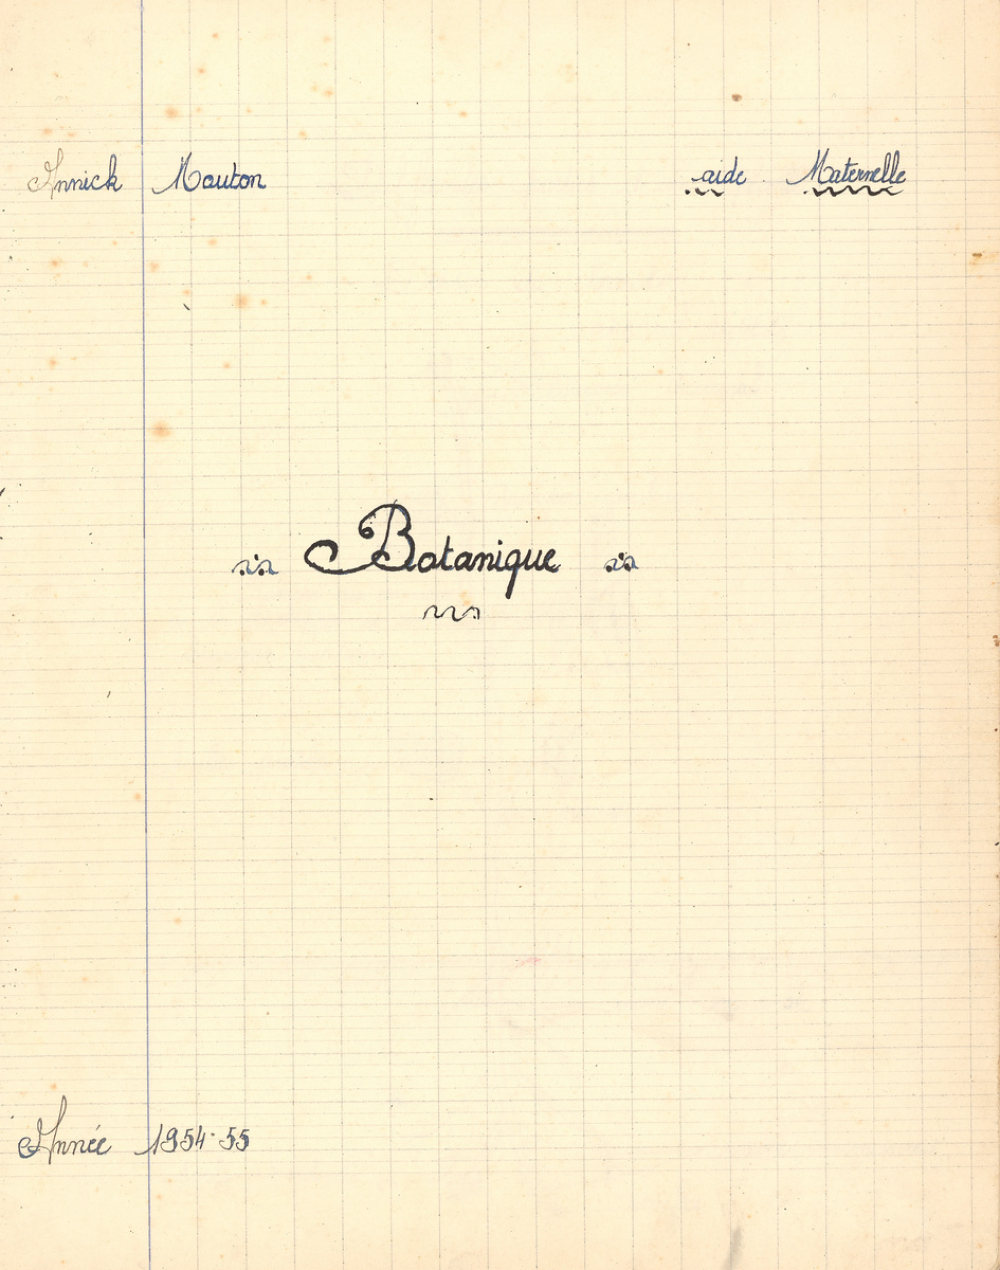 Annick Mouton aide Maternelle
Botanique
Année 1954-55